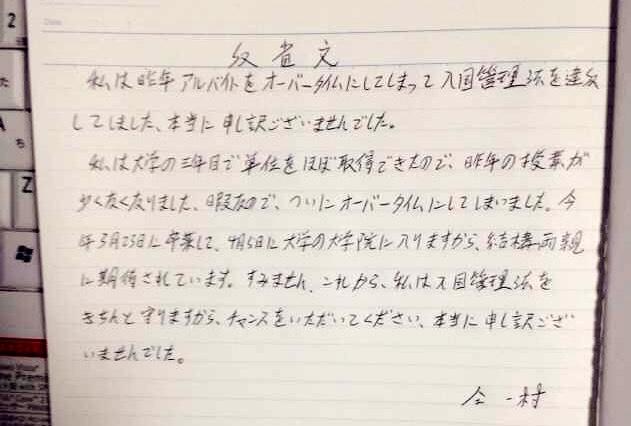 Date
反省文
私は昨年アルバイトをオーバータイムにしてしまって入国管理法を違反
してしました、本当に申し訳ございませんでした。
私は大学の三年目で単位をほぼ取得できたので、昨年の授業が
少くなくなりました、暇なので、ついにオーバータイムにしてしまいました。今
年3月23日に卒業して、4月5日に大学の大学院に入りますから、結構両親
に期待されています。すみません、これから、私は入国管理法を
きちんと守りますから、チャンスをいただいてください、本当に申し訳ござ
いませんでした。
仝一村
2
た
ち
Z